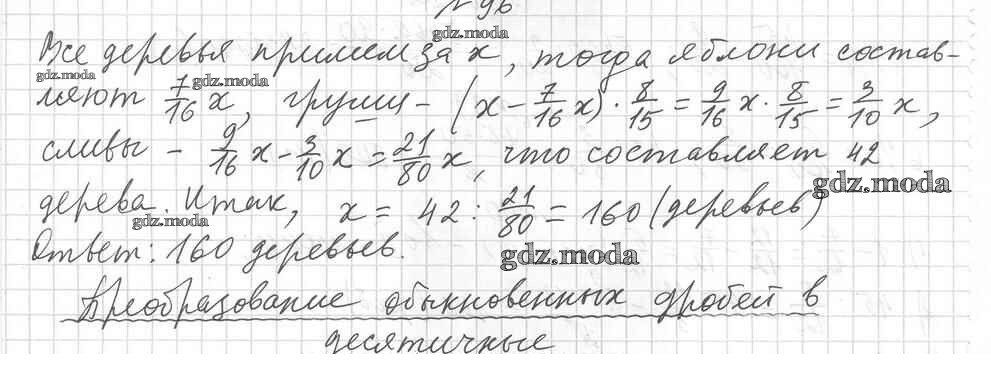 № 96
Все деревья примем за x, тогда яблони состав-
ляют 7/16 x, груши - (x - 7/16 x) · 8/15 = 9/16 x · 8/15 = 3/10 x,
сливы - 9/16 x - 3/10 x = 21/80 x, что составляет 42
дерева. Итак, x = 42 : 21/80 = 160 (деревьев)
Ответ: 160 деревьев.
Преобразование обыкновенных дробей в
десятичные
gdz.moda
gdz.moda
gdz.moda
gdz.moda
gdz.moda
gdz.moda